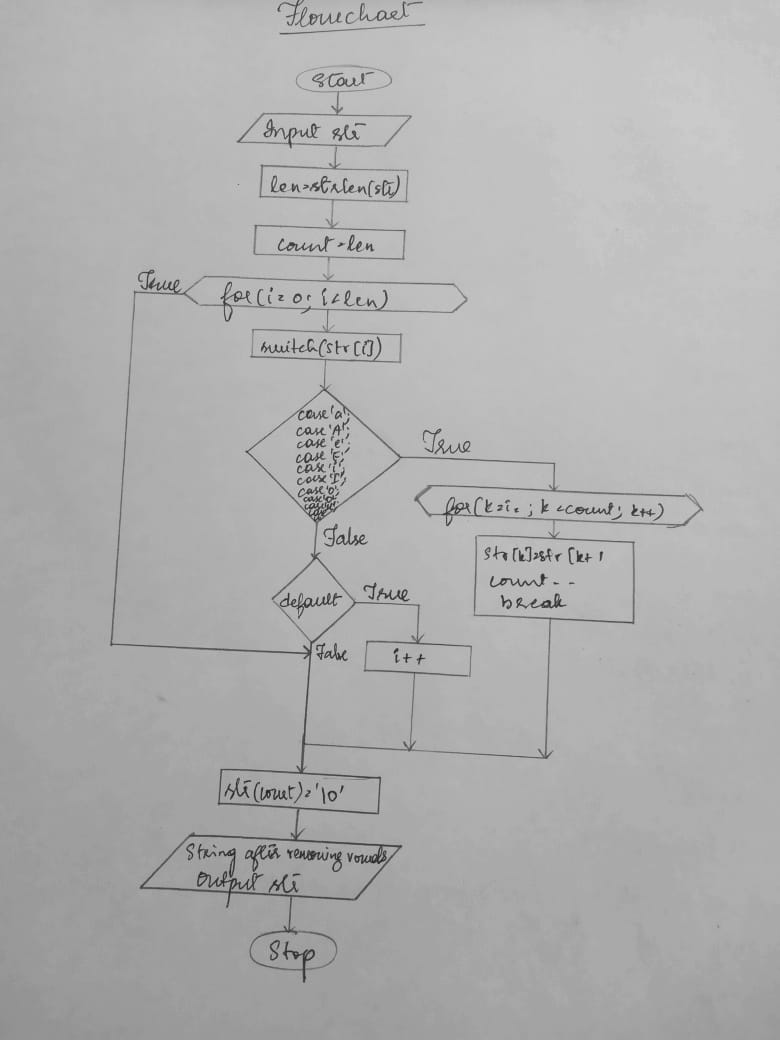 Flowchart
Start
Input str
len=strlen(str)
count=len
True
for(i=0; i<len)
switch(str[i])
case 'a':
case 'A':
case 'e':
case 'E':
case 'i':
case 'I':
case 'o':
True
for(k=i; ; k<count; k++)
False
str[k]=str[k+1
count--
break
default
True
False
i++
str(count)='\0'
String after removing vowels
Output str
Stop